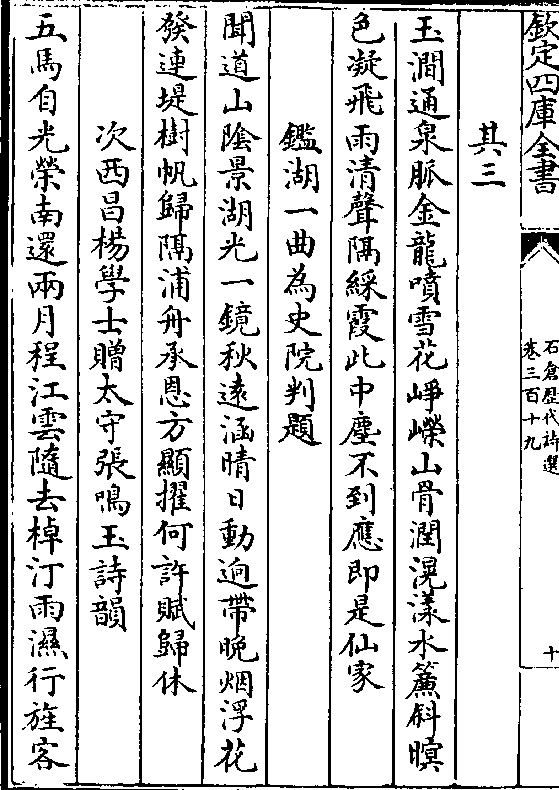 欽定四庫全書
石倉歷代詩選
卷三百十九
十
其三
玉澗通泉脈金龍噴雪花崢嶸山骨潤滉漾水簾斜暝
色凝飛雨清聲隔綵霞此中塵不到應即是仙家
鑑湖一曲為史院判題
聞道山陰景湖光一鏡秋遠涵晴日動逈帶晚烟浮花
發連堤樹帆歸隔浦舟承恩方顯擢何許賦歸休
次西昌楊學士贈太守張鳴玉詩韻
五馬自光榮南還兩月程江雲隨去棹汀雨濕行旌客